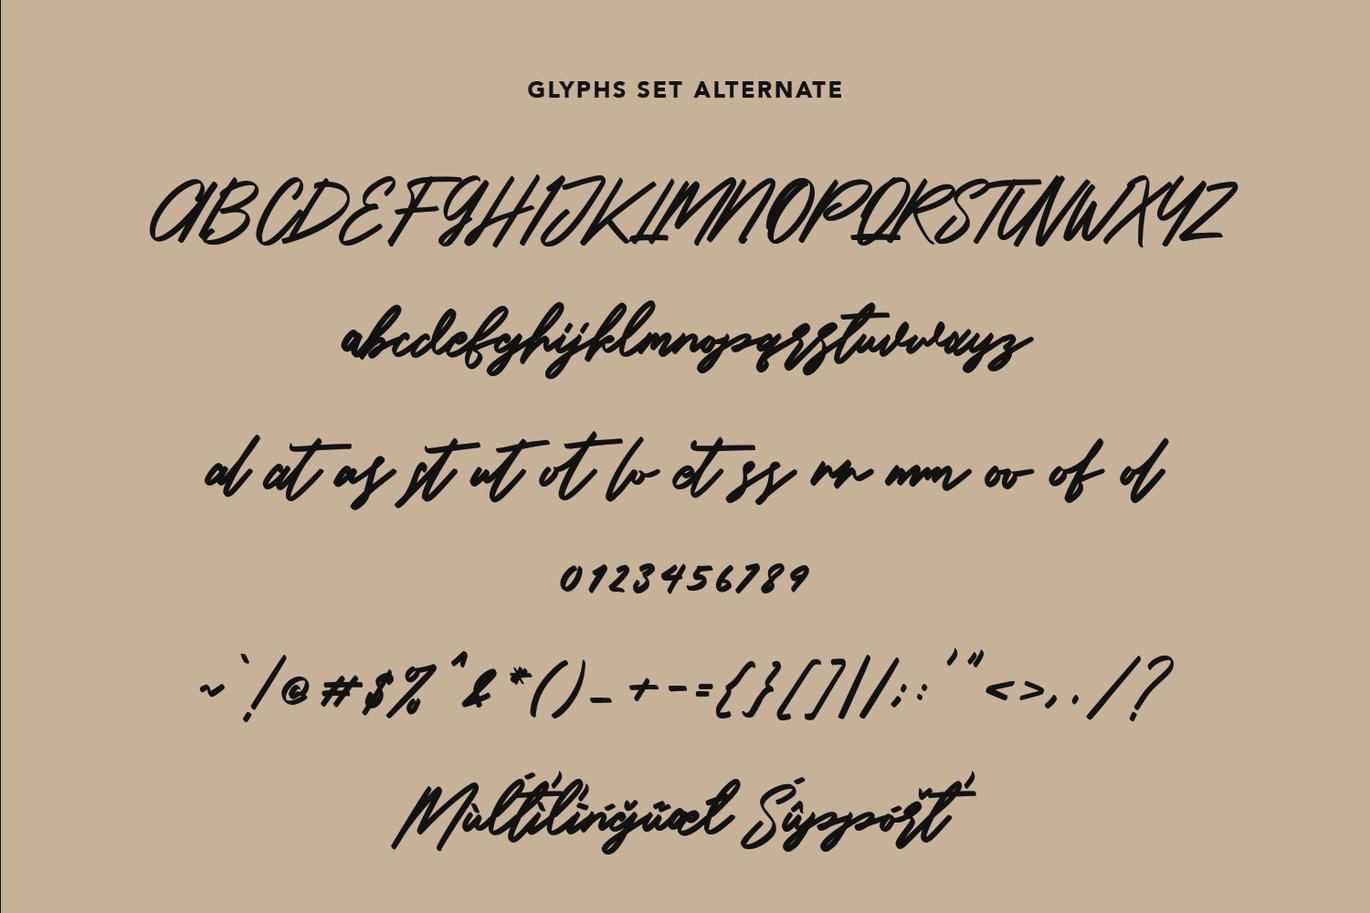 GLYPHS SET ALTERNATE
ABCDEFGHIJKLMNOPQRSTUVWXYZ
abcdefghijklmnopqrstuvwxyz
al at as st ut ot lo et ss nn mm oo of ol
0123456789
~`!@#$%^&*()_+-={}[]|/;:'"<>,./?